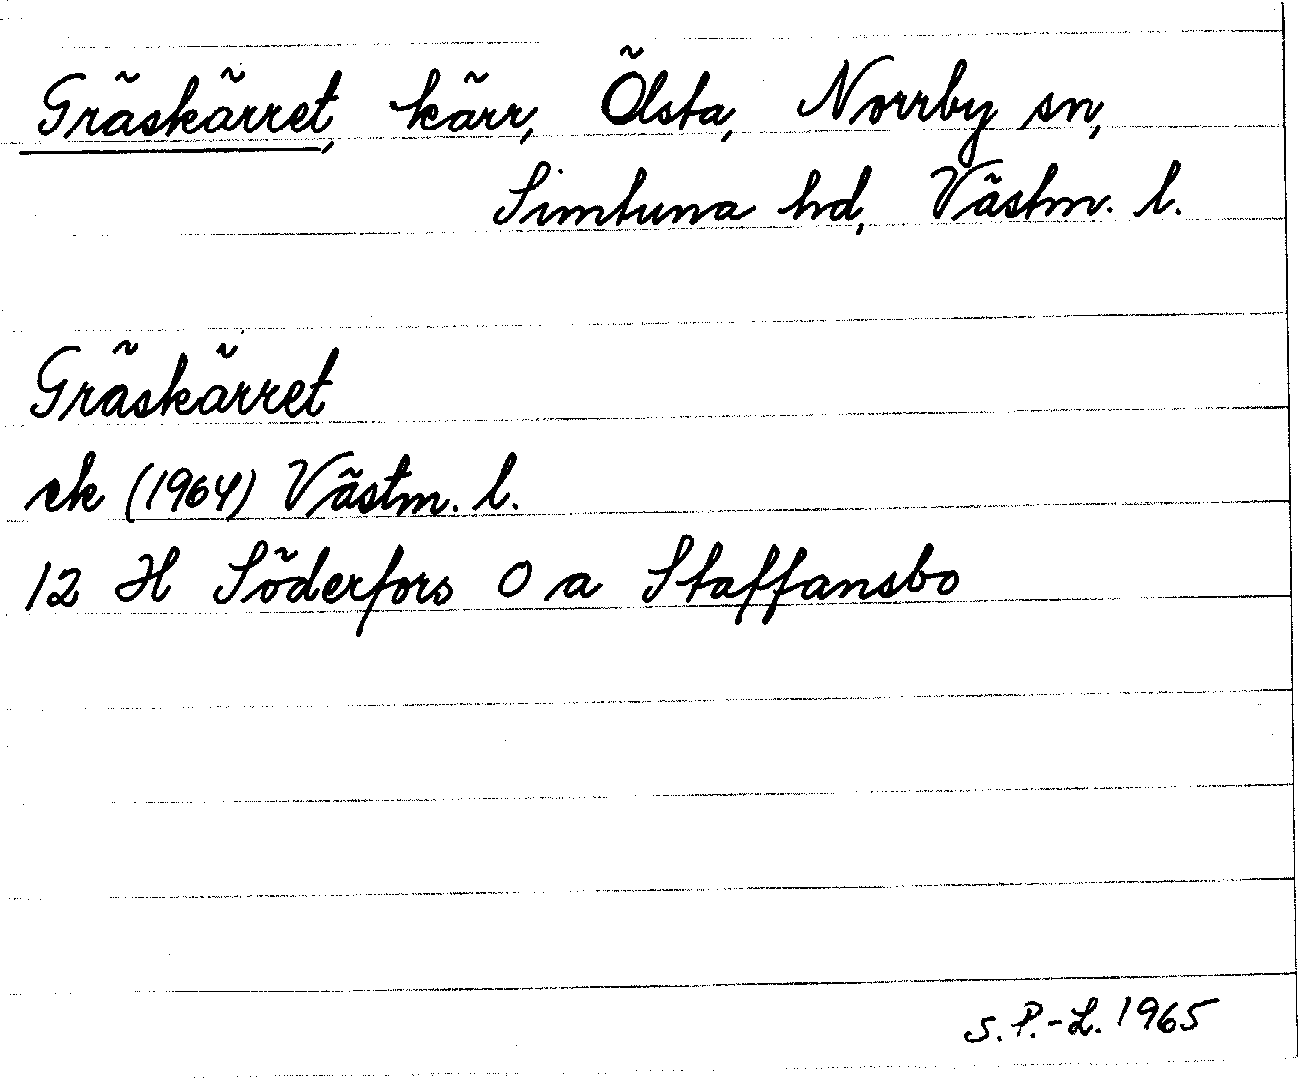 Gräskärret, kärr, Ölsta, Norrby sn,
Simtuna hd, Västm. l.
Gräskärret
ek (1964) Västm. l.
12 H Söderfors 0 a Staffansbo
S.P.-L. 1965